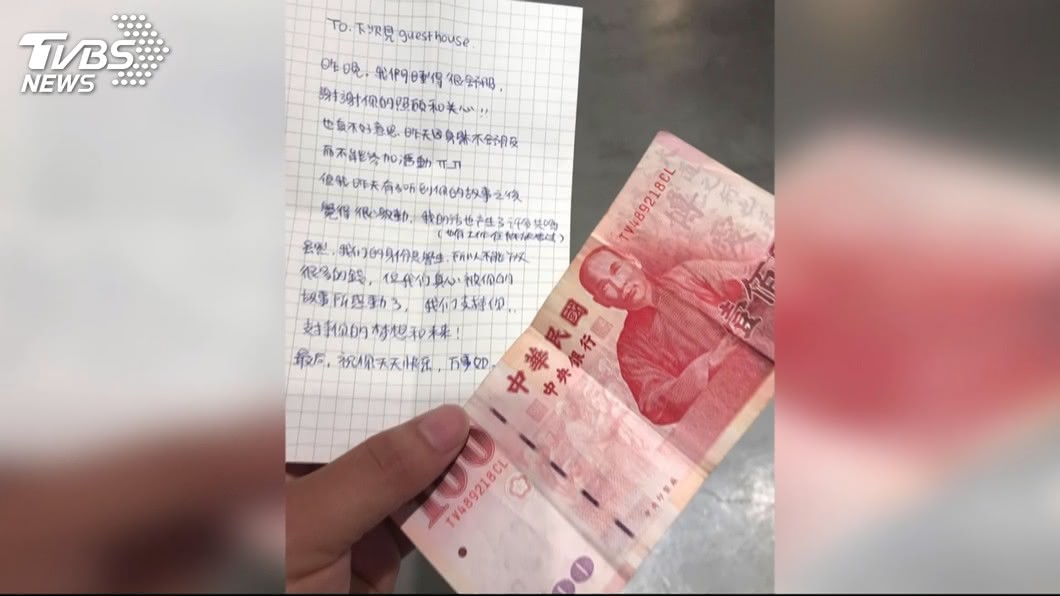 TVBS
NEWS
TO. 下次見 guesthouse.
昨晚, 我们睡得很舒服,
謝謝你的照顧和关心!!
也真不好意思, 昨天因身体不舒服
而不能参加活動 π_π
但我昨天有听到你的故事之後
覺得很心動, 我的话也产生了许多共鸣
我们的身份是學生, 所以不能放
很多的錢, 但我们真心被你的
故事所感動了, 我们支持你,,
支持你的梦想和未来!
最后, 祝你天天快乐, 万事如
中華民國
中央銀行
TV489218CL
100
TV489218CL
壹佰